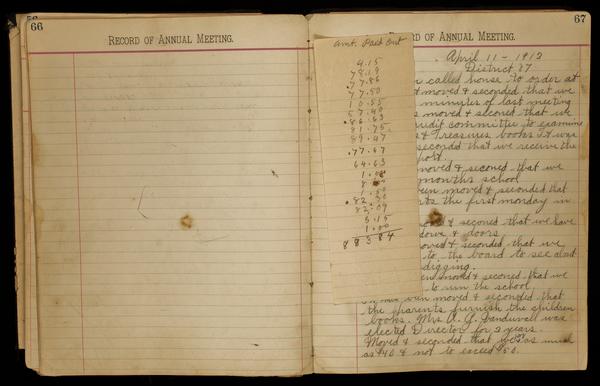 66
RECORD OF ANNUAL MEETING.
Amt. Paid Out
4.15
78.19
.77.86
77.50
10.55
57.40
.86.63
81.75
89.47
.77.67
64.63
1.00
1.50
.82.30
82.09
5.15
1.00
88384
67
RECORD OF ANNUAL MEETING.
April 11 - 1912
District 27
called house to order at
moved & seconded that we
minutes of last meeting
moved & seconed that we
audit committee to examine
& Treasures books It was
seconded that we receive the
moved & seconed that we
months school
been moved & seconded that
the first monday in
& seconed that we have
& doors
moved & seconded that we
to the board to see about
digging.
moved & seconed that we
to run the school
It has been moved & seconded that
the parents furnish the children
books. Mrs A. G. was
elected Director for 3 years.
Moved & seconded that we as much
as $40 & not to exceed $50.